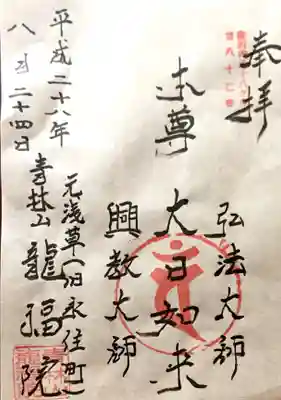 奉拝
弘法大師
本尊 大日如来
興教大師
元浅草(旧永住町)
青林山 龍福院
平成二十八年
八月二十四日